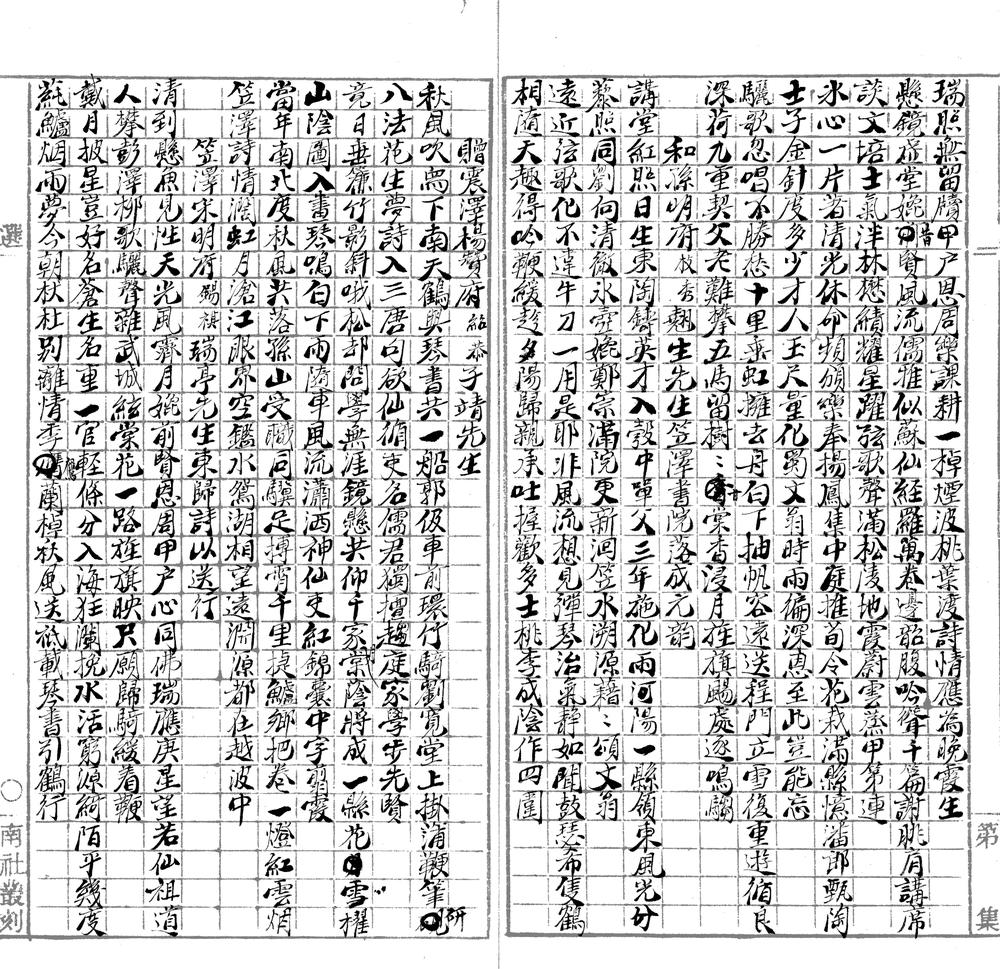 第　集
瑞照無留牘甲戶恩周樂課耕一棹煙波桃葉渡詩情應為晚霞生
懸鏡虛堂媲昔賢風流儒雅似蘇仙經羅萬卷邊韶腹吟聳千篇謝眺肩講席
談文培士氣泮林懋績耀星躔弦歌聲滿松陵地霞蔚雲蒸甲第連
氷心一片著清光休命頻頒樂奉揚鳳集中庭推荀令花栽滿縣憶潘郎甄陶
士子金針度多少才人玉尺量化蜀文翁時雨偏深恩至此豈能忘
驪歌忽唱不勝愁十里垂虹擁去舟白下抽帆容遠送程門立雪復重遊循良
深荷九重契父老難攀五馬留樹樹甘棠香浸月旌旗颺處逐鳴騶
和孫明府枝秀翹生先生笠澤書院落成元韻
講堂紅照日生東陶鑄英才入彀中單父三年施化雨河陽一縣領東風光分
藜照同劉向清徹氷壺媲鄭崇滿院更新洄笠水溯源藉藉頌文翁
遠近弦歌化不違牛刀一用是耶非風流想見彈琴治氣靜如聞鼓瑟希隻鶴
相隨天趣得吟鞭緩趁夕陽歸親承吐握歡多士桃李成陰作四圍
贈震澤楊贊府紹恭子靖先生
秋風吹雋下南天鶴與琴書共一船郭伋車前環竹騎劉寬堂上掛蒲鞭筆研
八法花生夢詩入三唐句欲仙循吏名儒君獨擅趨庭家學步先賢
竟日垂簾竹影斜哦松却問學無涯鏡懸共仰千家棠陰將成一縣花雪櫂
山陰圖入畫琴鳴白下雨隨車風流瀟洒神仙吏紅錦囊中字翦霞
當年南北度秋風共落孫山受職同驥足搏霄千里掉鱸鄉把卷一燈紅雲烟
笠澤詩情濶虹月滄江眼界空鑑水鴛湖相望遠淵源都在越波中
笠澤宋明府錫祺瑞亭先生東歸詩以送行
清到懸魚見性天光風霽月媲前賢恩周甲戶心同佛瑞應庚星望若仙祖道
人攀彭澤柳歌驪聲雜武城絃棠花一路旌旗映只願歸騎緩着鞭
戴月披星豈好名蒼生名重一官輕條分入海狂瀾挽水活窮源綺陌平幾度
蒓鱸烟雨夢今朝杕杜別離情季鷹蘭棹秋風送祇載琴書引鶴行
選　○南社叢刻